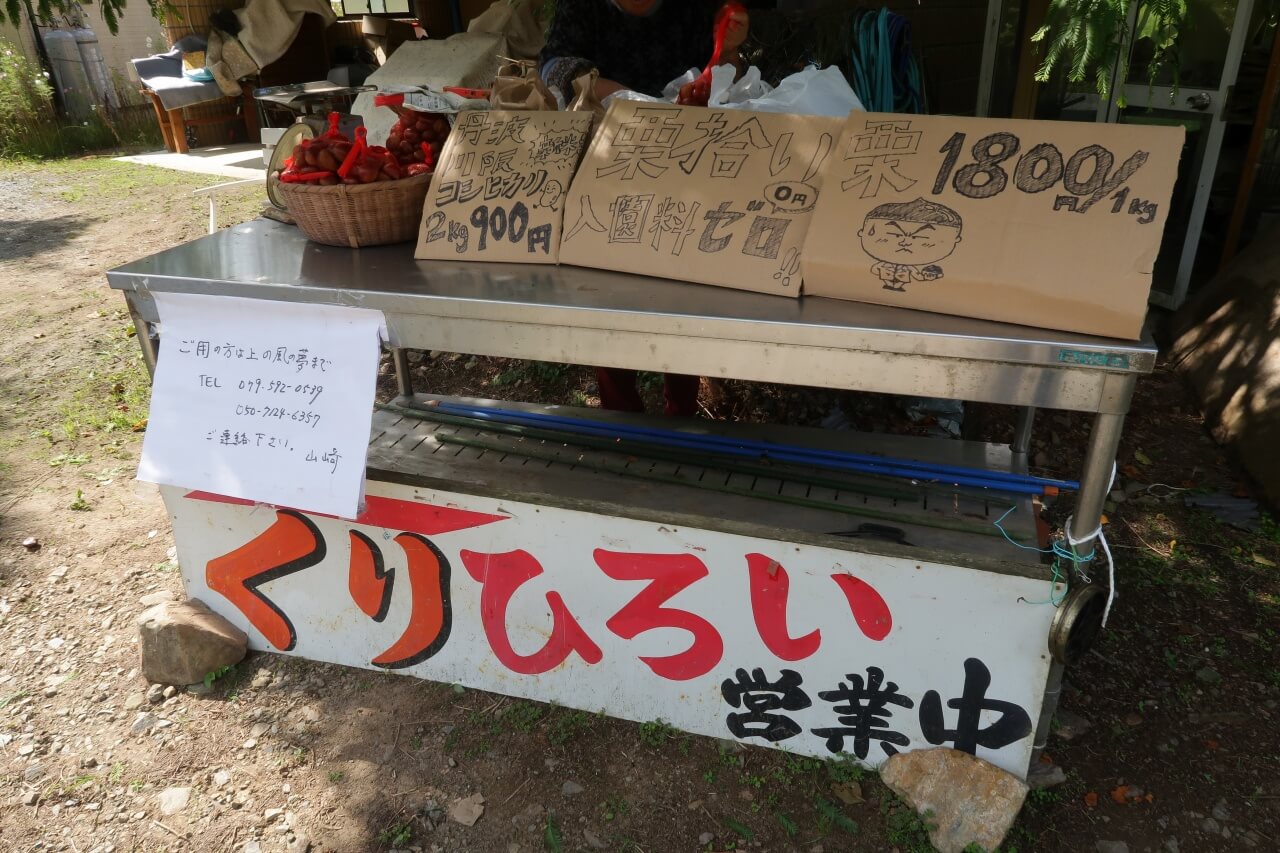 丹波
川阪
コシヒカリ
2kg 900円
栗拾い
入園料ゼロ!!
0円
栗 1800円/1kg
ご用の方は上の風の夢まで
TEL 079-592-0539
050-7124-6357
ご連絡下さい。 山崎
くりひろい
営業中